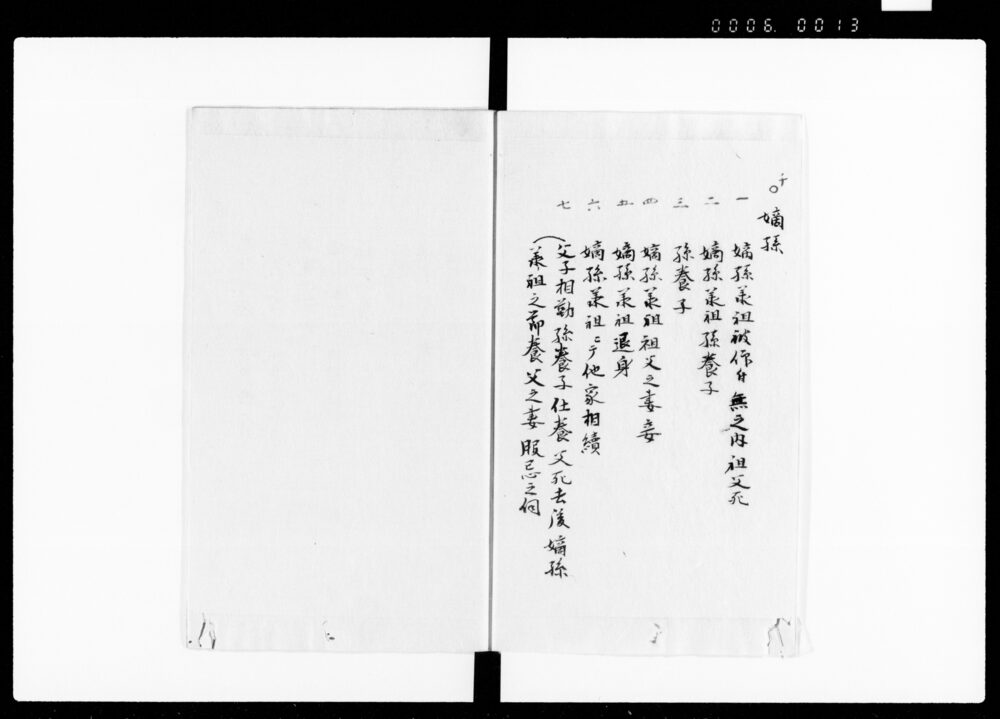 0006. 0013
テ
○嫡孫
一 嫡孫承祖被仰付無之内祖父死
二 嫡孫承祖孫養子
三 孫養子
四 嫡孫承祖祖父之妻妾
五 嫡孫承祖退身
六 嫡孫承祖ニテ他家相續
七 父子相勤孫養子仕養父死去後嫡孫
承祖之節養父之妻服忌之伺